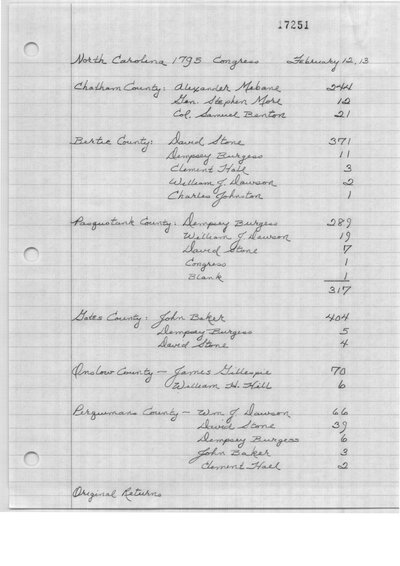 17251
North Carolina 1795 Congress February 12, 13
Chatham County: Alexander Mebane 244
Gen. Stephen More 12
Col. Samuel Benton 21
Bertie County: David Stone 371
Dempsey Burgess 11
Clement Hall 3
William J Dawson 2
Charles Johnston 1
Pasquotank County: Dempsey Burgess 289
William J Dawson 19
David Stone 7
Congress 1
Blank 1
317
Gates County: John Baker 404
Dempsey Burgess 5
David Stone 4
Onslow County - James Gillespie 70
William H. Hill 6
Perquimans County - Wm J Dawson 66
David Stone 39
Dempsey Burgess 6
John Baker 3
Clement Hall 2
Original Returns